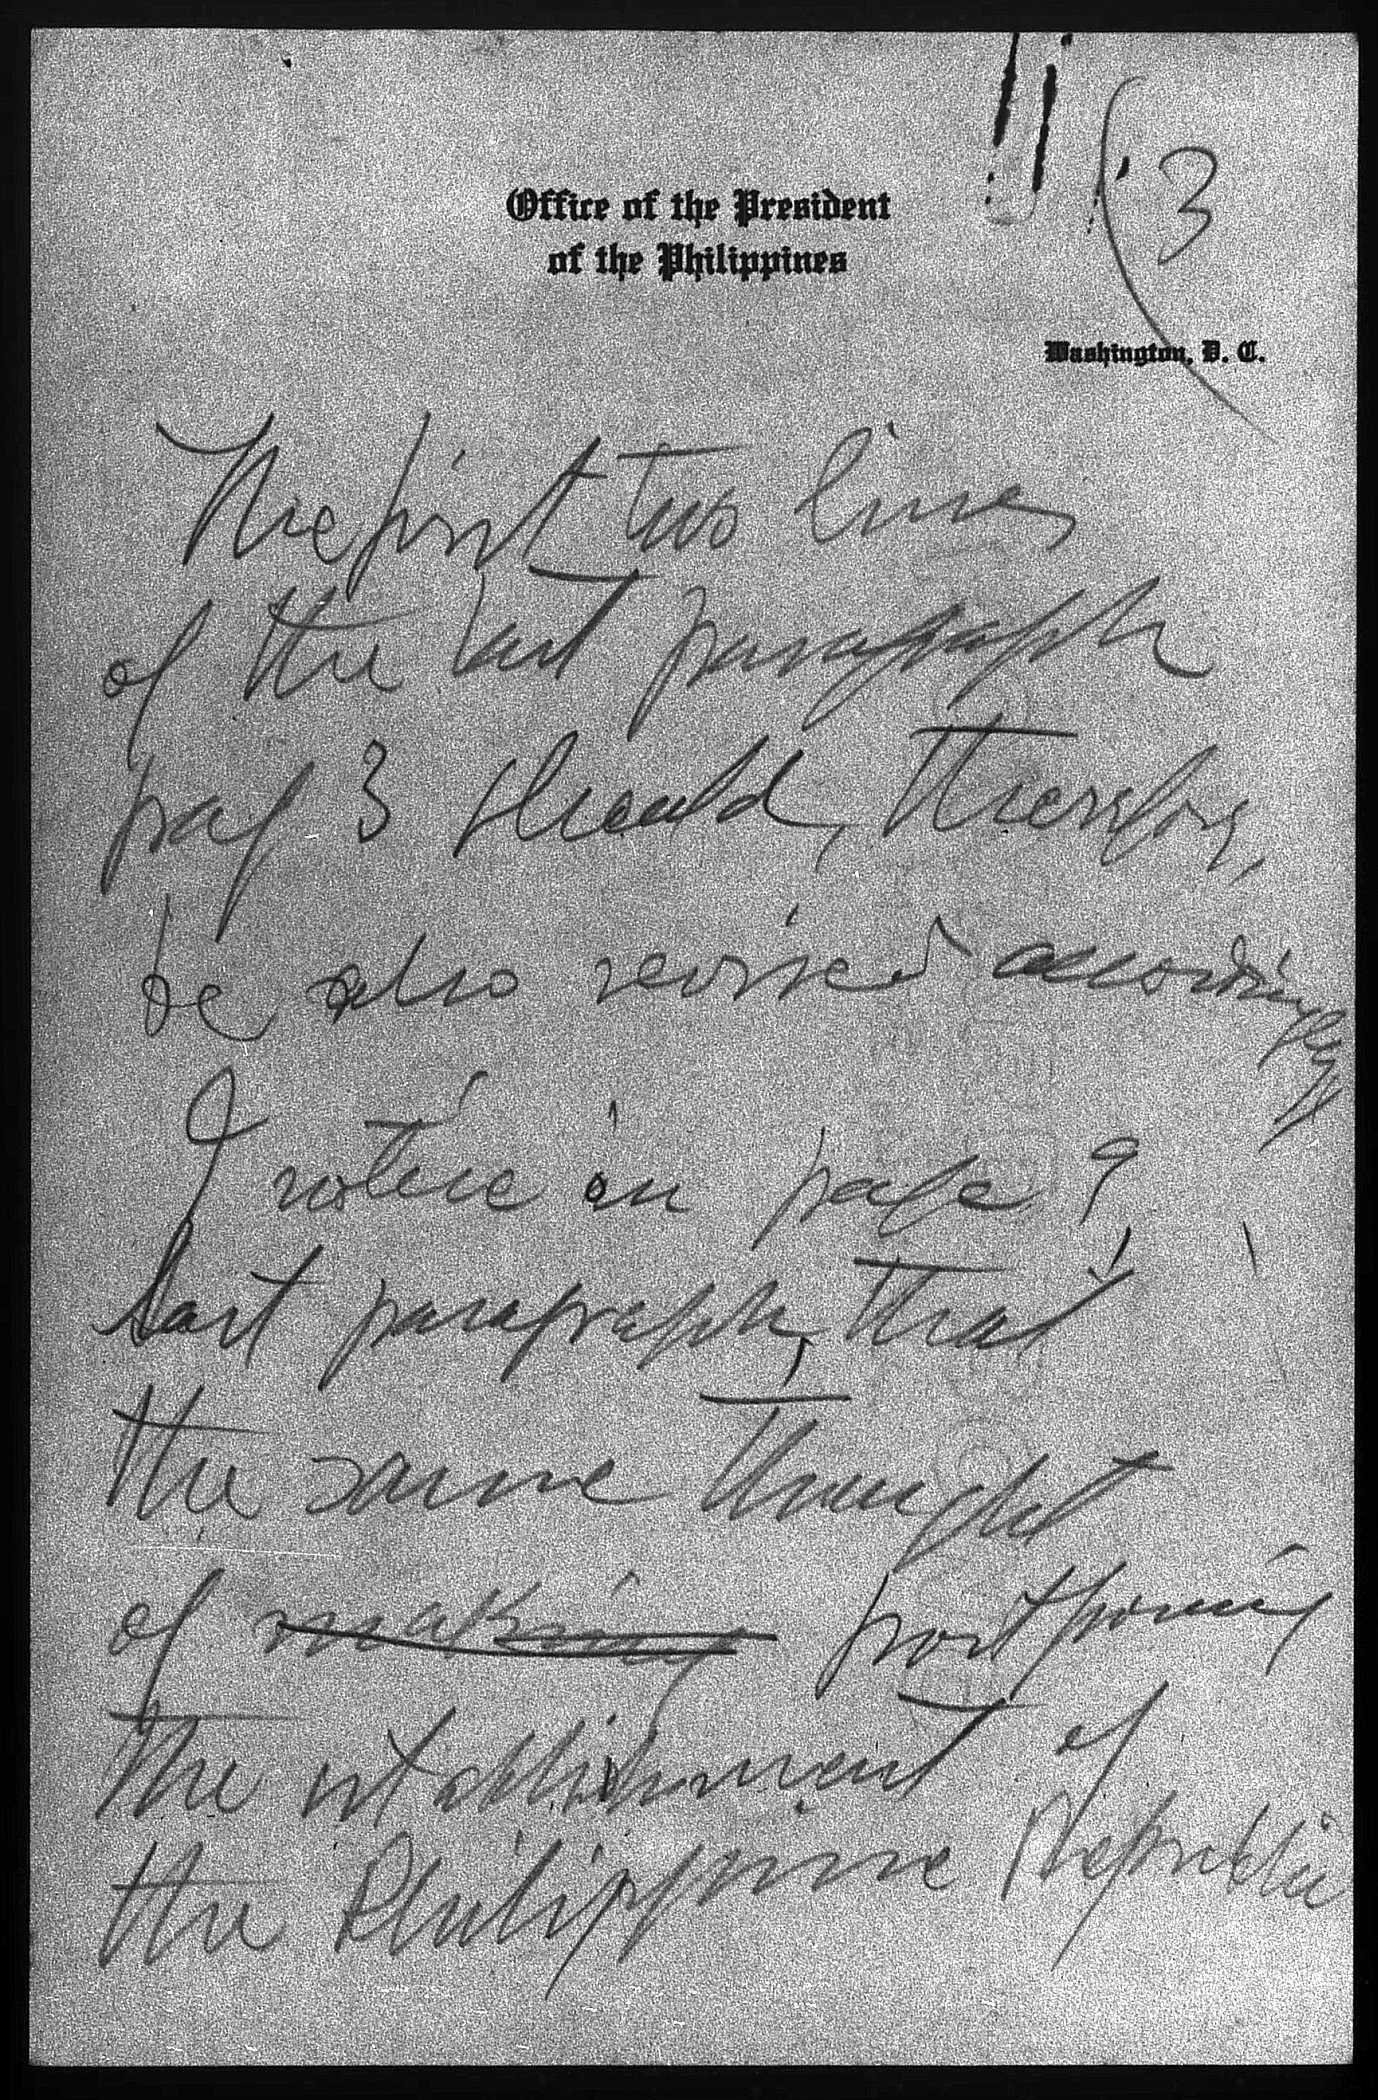 3
Office of the President
of the Philippines
Washington, D. C.
The first two lines
of the last paragraph
pag 3 should, therefore,
be also revised accordingly
I notice in page 9
last paragraph, that
the same thought
of making postponing
the establishment of
the Philippine Republic